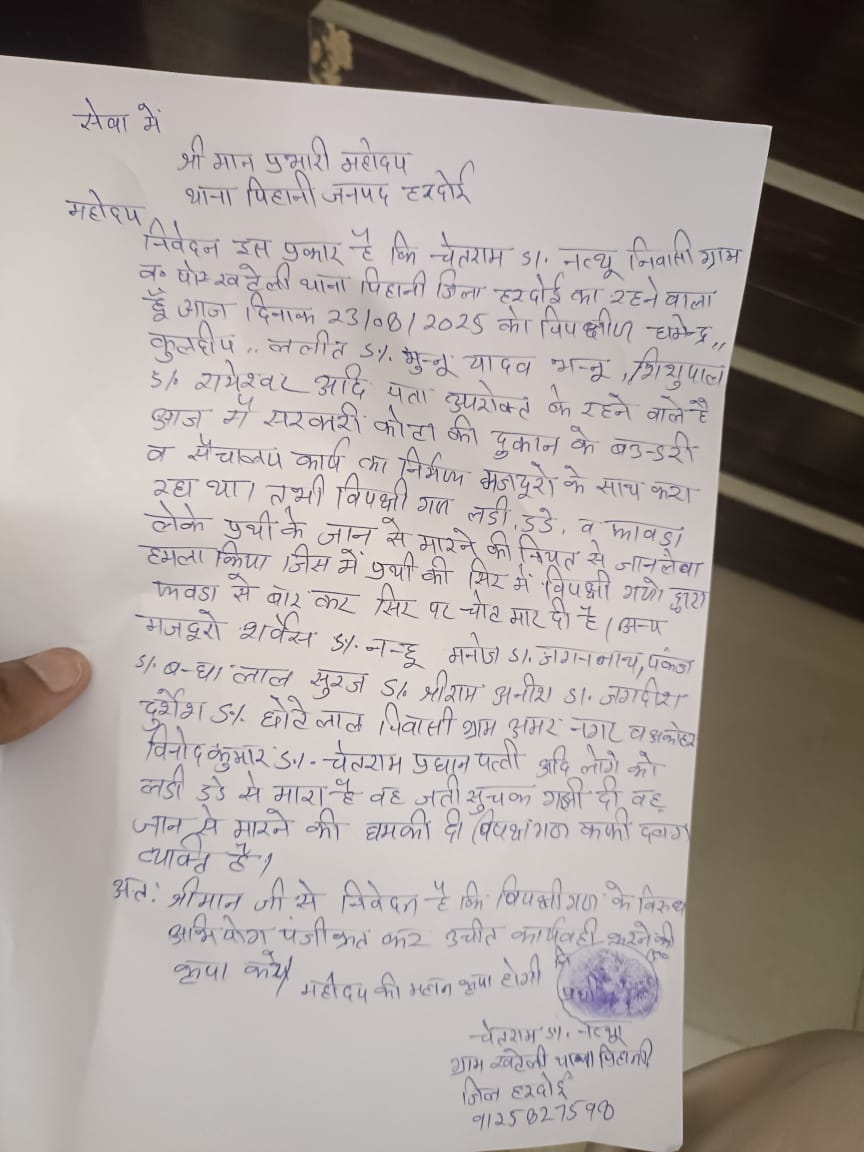 सेवा में
श्री मान प्रभारी महोदय
थाना पिहानी जनपद हरदोई
महोदय
निवेदन इस प्रकार है कि चेतराम S/. नत्थू निवासी ग्राम
व. पोस्ट खटेली थाना पिहानी जिला हरदोई का रहने वाला
हूँ आज दिनाक 23/08/2025 को विपक्षीगण धर्मेन्द्र,,
कुलदीप,, ललीत S/. मुन्नू यादव भन्नू, शिशुपाल
S/. रामेश्वर आदि पता उपरोक्त के रहने वाले है
आज मैं सरकारी कोटा की दुकान के बउन्डरी
व सैचालय कार्य का निर्माण मजदूरो के साथ करा
रहा था। तभी विपक्षी गण लठी, डडे, व फावड़ा
लेके प्रथी के जान से मारने की नियत से जानलेवा
हमला किया। जिस में प्रथी की सिर में विपक्षी गणो द्वारा
फावडा से बार कर सिर पर चोट मार दी है। अन्य
मजदूरो शर्वेस S/. नन्हू मनोज S/. जगननाथ, पंकज
S/. बन्धा लाल सुरज S/. श्रीराम अनीश S/. जगदीश
दुर्शेश S/. छोटे लाल निवासी ग्राम अमर नगर व
विनोद कुमार S/.- चेतराम प्रधान पत्ती अदि लोगे को
लठी डडे से मारा है वह जती सुचक गाली दी वह
जान से मारने की धमकी दी विपक्षीगण काफी दबंग
व्यक्ति है।
अत: श्रीमान जी से निवेदन है कि विपक्षीगण के विरुध
अभियोग पंजीकृत कर उचीत कार्यवही करने की
कृपा करे। महोदय की महान कृपा होगी
प्रथी
चेतराम S/. नत्थू
ग्राम खटेली थाना पिहानी
जिला हरदोई
9125827598